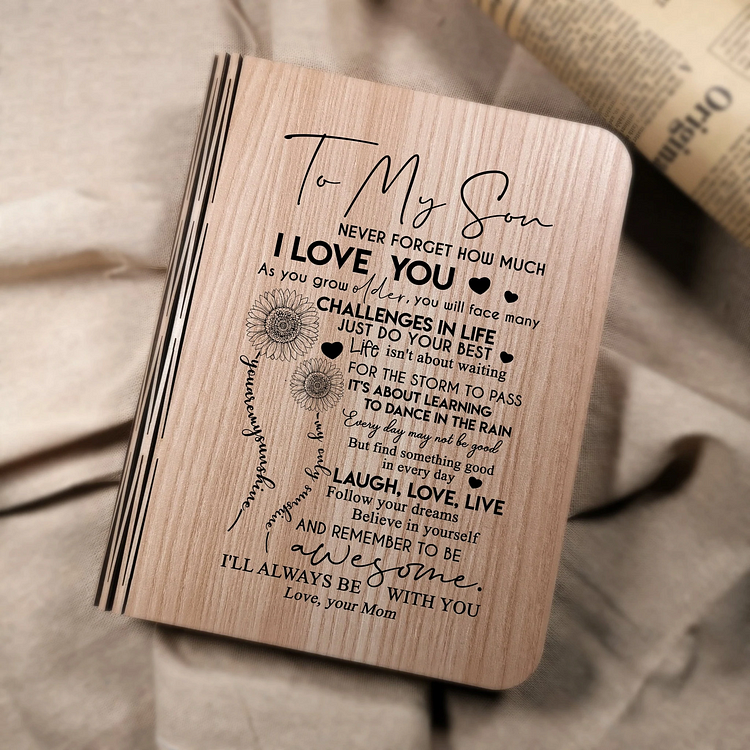 To My Son
NEVER FORGET HOW MUCH
I LOVE YOU
As you grow older, you will face many
CHALLENGES IN LIFE
JUST DO YOUR BEST
Life isn't about waiting
FOR THE STORM TO PASS
IT'S ABOUT LEARNING
TO DANCE IN THE RAIN
Every day may not be good
But find something good
in every day
LAUGH, LOVE, LIVE
Follow your dreams
Believe in yourself
AND REMEMBER TO BE
awesome.
I'LL ALWAYS BE WITH YOU
Love, your Mom
youaremysunshine
my only sunshine
Origin